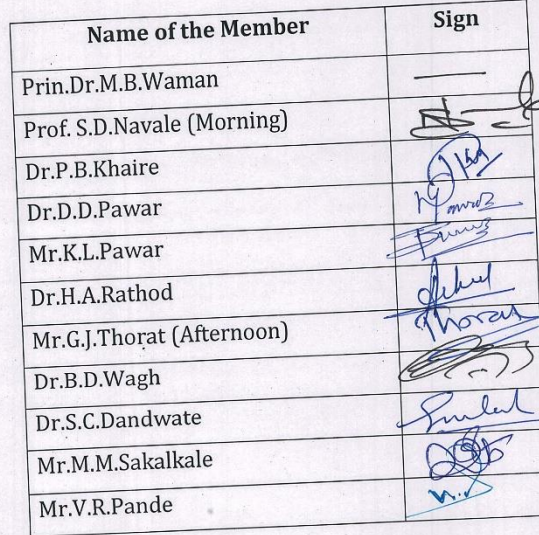 Name of the Member Sign
Prin.Dr.M.B.Waman
Prof. S.D.Navale (Morning)
Dr.P.B.Khaire
Dr.D.D.Pawar
Mr.K.L.Pawar
Dr.H.A.Rathod
Mr.G.J.Thorat (Afternoon) Thorat
Dr.B.D.Wagh
Dr.S.C.Dandwate
Mr.M.M.Sakalkale
Mr.V.R.Pande